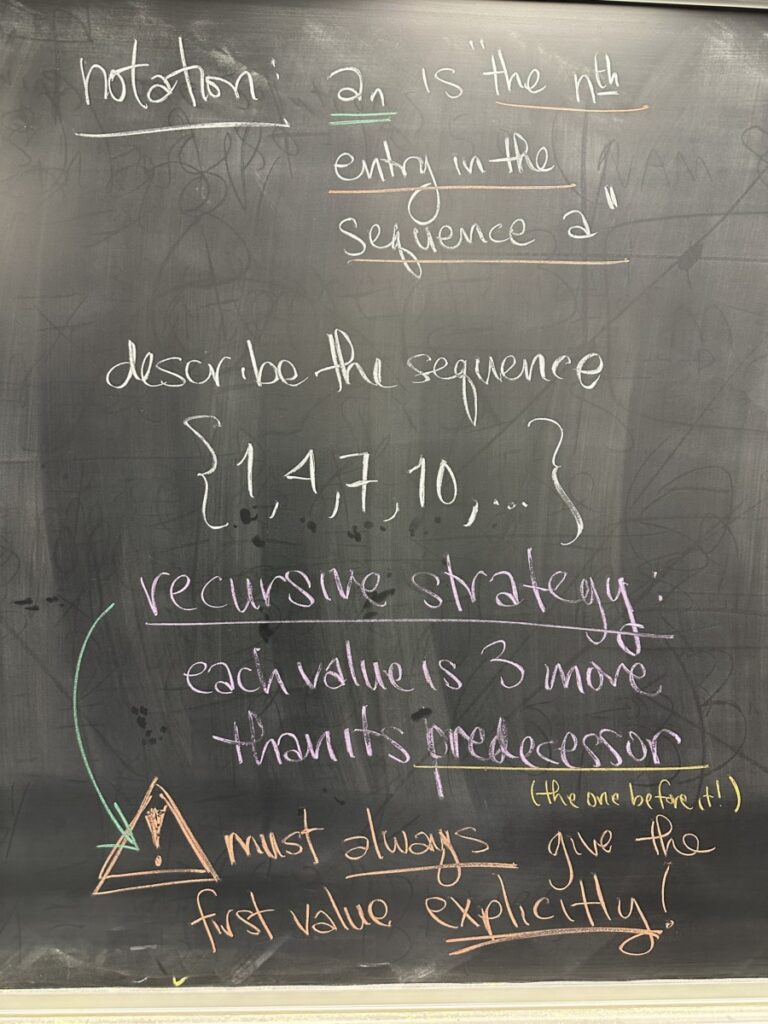 notation: aₙ is "the nth
entry in the
sequence a"
describe the sequence
{1, 4, 7, 10, ...}
recursive strategy:
each value is 3 more
than its predecessor
(the one before it!)
! must always give the
first value explicitly!